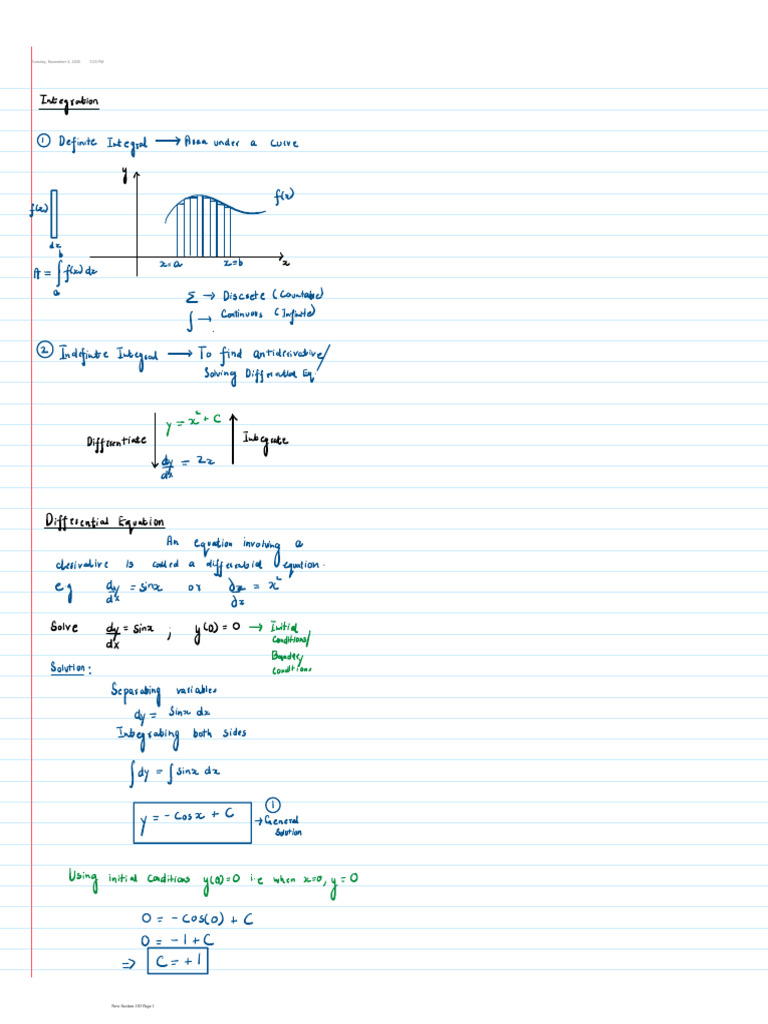 Tuesday, November 4, 2025
Integration
① Definite Integral ⟶ Area under a curve
y
f(x)
f(x)
dx
x=a
x=b
x
A = ∫ₐᵇ f(x) dx
Σ → Discrete (Countable)
∫ → Continuous (Infinite)
② Indefinite Integral ⟶ To find antiderivative/
Solving Differential Eq.
Differentiate
y = x² + C
Integrate
dy/dx = 2x
Differential Equation
An equation involving a
derivative is called a differential equation.
e.g dy/dx = sinx or ∂z/∂x = x²
Solve dy/dx = sinx ; y(0) = 0 → Initial
Conditions/
Boundary
Conditions
Solution:
Separating variables
dy = sinx dx
Integrating both sides
∫dy = ∫sinx dx
y = -cosx + C
①
→ General
Solution
Using initial conditions y(0)=0 i.e when x=0, y=0
0 = -cos(0) + C
0 = -1 + C
⇒ C = +1